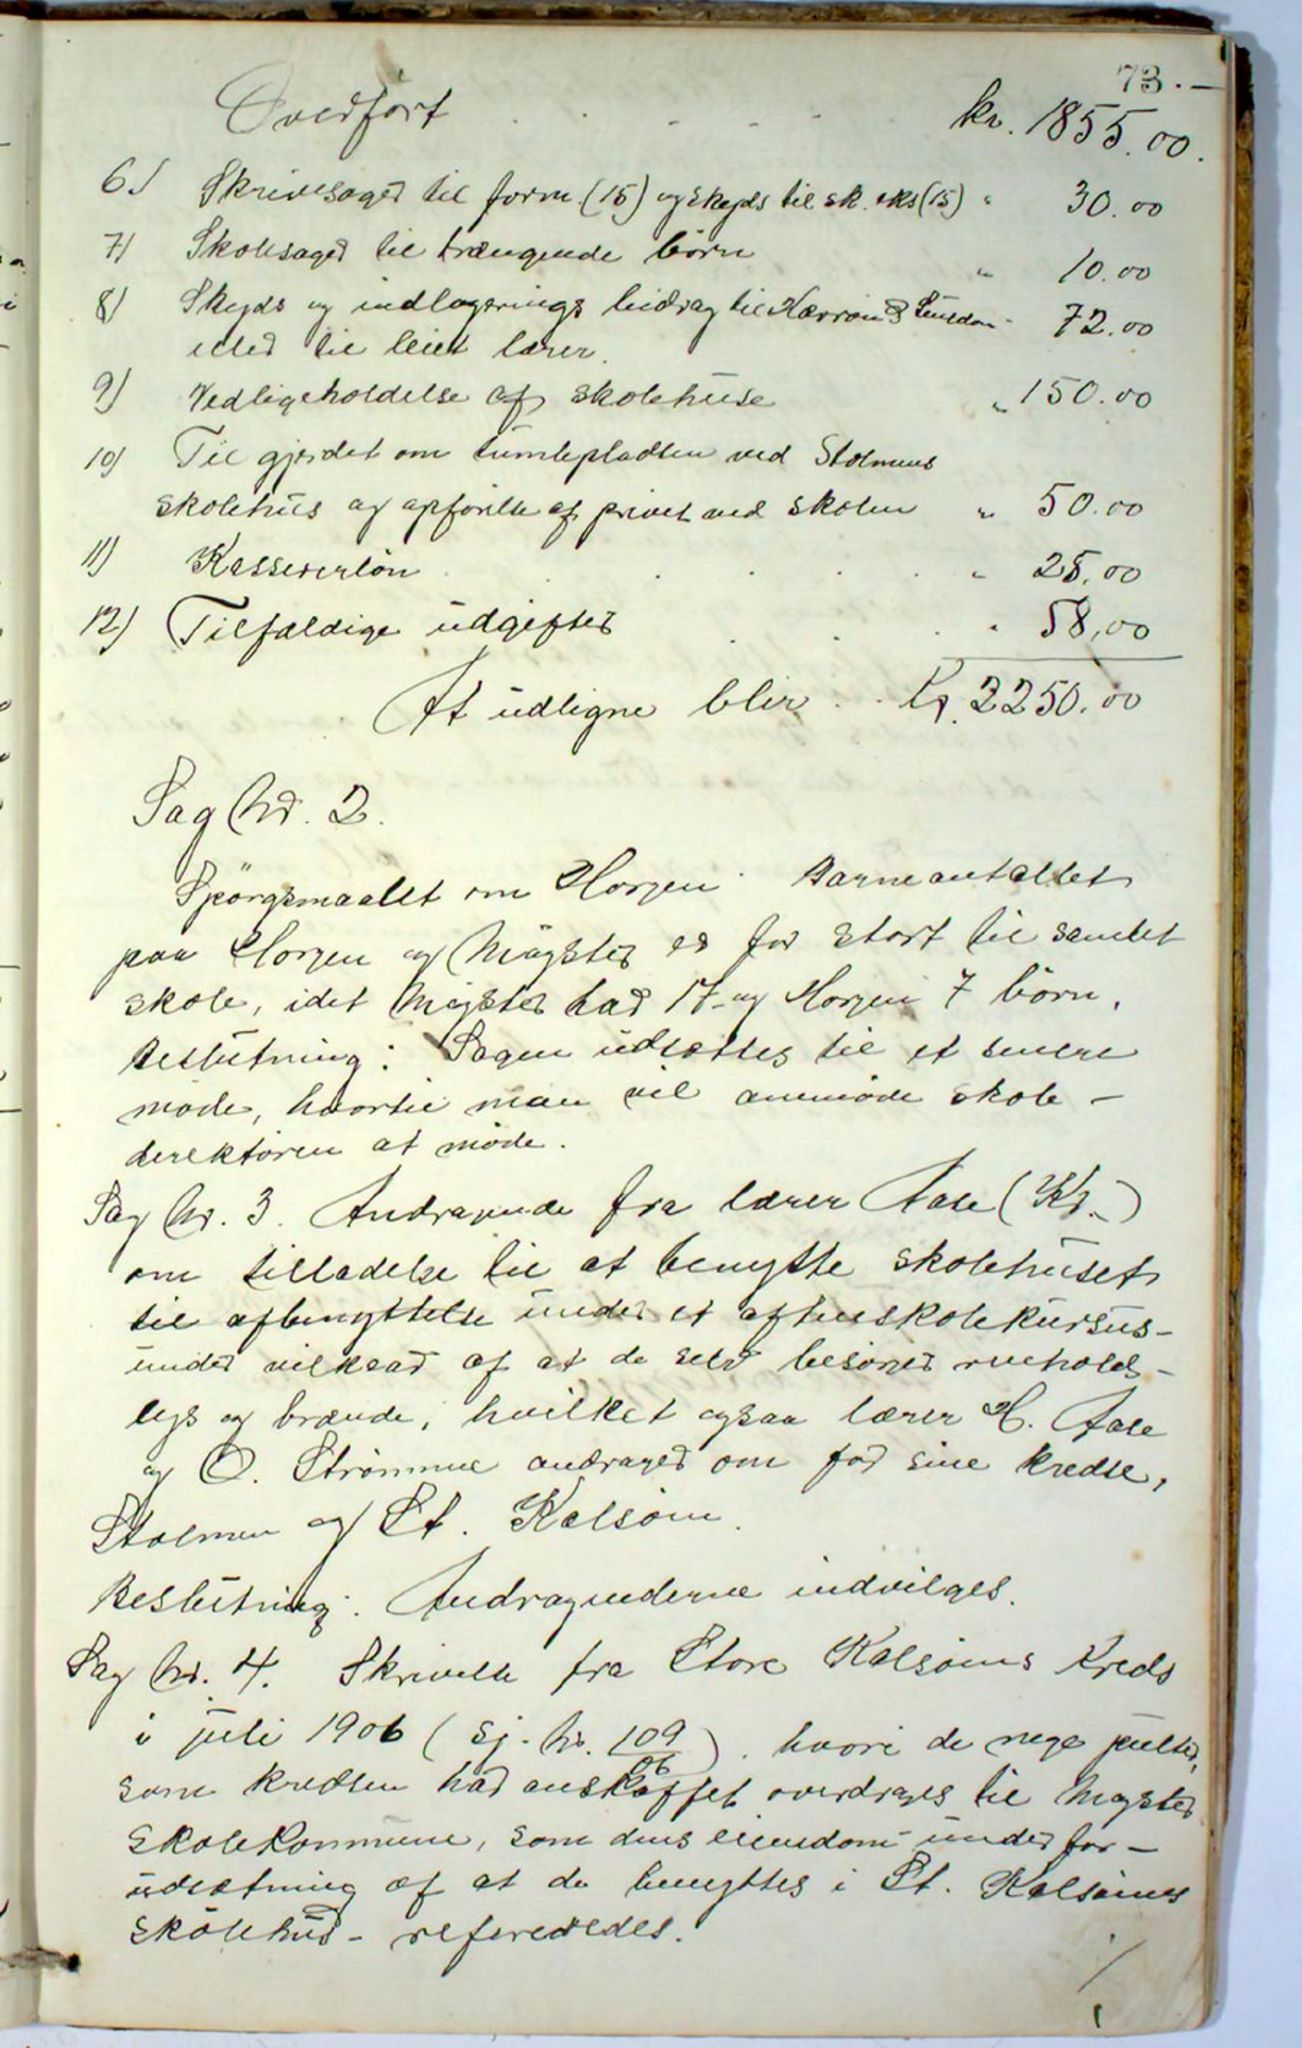 73.—
Overført . . . . . kr. 1855.00.
6.) Skrivesager til form. (15) og skyds til sk. eks (15) " 30.00
7) Skolesager til trængende børn " 10.00
8) Skyds og indlogerings bidrag til 72.00
eller til leiet lærer.
9) Vedligeholdelse af skolehuse " 150.00
10) Til gjerdet om tumlepladsen ved Stolmens
skolehus og opførelse af privet ved skolen " 50.00
11) Kassererløn . . . . " 25.00
12) Tilfældige udgifter . . . " 58,00
At udligne blir . . Kr. 2250.00
Sag Nr. 2.
Spørgsmaalet om Horgen. Barneantallet
paa Horgen og Møgster er for stort til samlet
skole, idet Møgster har 17 og Horgen 7 børn.
Beslutning: Sagen udsættes til et senere
møde, hvortil man vil anmode skole-
derektøren at møde.
Sag Nr. 3. Andragende fra lærer Aase (Kr.)
om tilladelse til at benytte skolehuset
til afbenyttelse under et aftenskolekursus-
under vilkaar af at de selv besørger renhold-
lys og brænde, hvilket ogsaa lærer H. Aase
og O. Strømme andrager om for sine kredse,
Stolmen og St. Kalsøen.
Beslutning: Andragenderne indvilges.
Sag Nr. 4. Skrivelse fra Store Kalsøens Kreds
i juli 1906 (Sj. Nr. 109/06). hvori de nye pulter,
som kredsen har anskaffet overdrages til Møgster
skolekommune, som dens eiendom under for-
udsætning af at de benyttes i St. Kalsøens
skolehus - refereredes.
./.